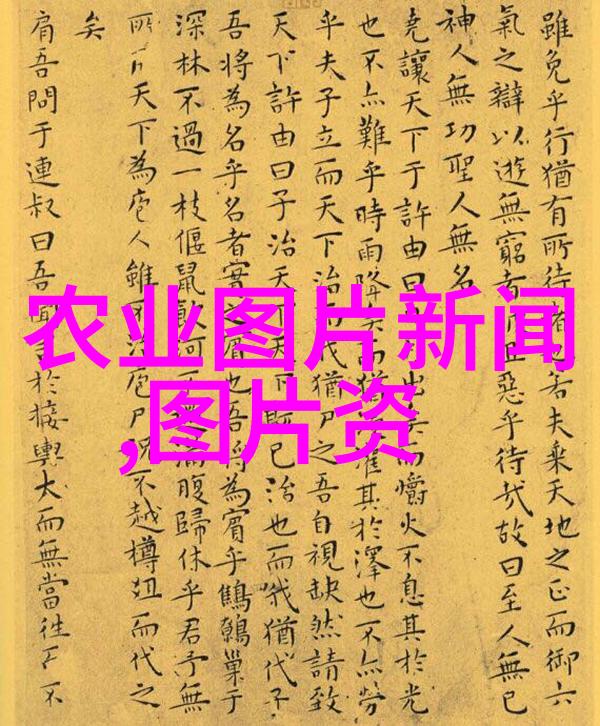 雖免乎行猶有所待者若夫乘天地之正而御六
氣之辯以遊無窮者且惡乎待哉故曰至人無己
神人無功聖人無名
堯讓天下于許由曰出矣而爝火不息其於光
也不亦難乎時雨降矣而猶灌其於澤也不亦勞
乎夫子立而天下治而我猶尸之吾自視缺然請致
天下許由曰子治天下天下既已治也而我猶代子
吾將為名乎名者實之賓也吾將為賓乎鷦鷯巢于
深林不過一枝偃鼠飲河不滿腹歸休乎君予無
所天下為庖人雖不治庖尸祝不越樽俎而代之
矣
肩吾問于連叔曰吾聞言於接輿大而無當往不
农业图片新闻
,图片资